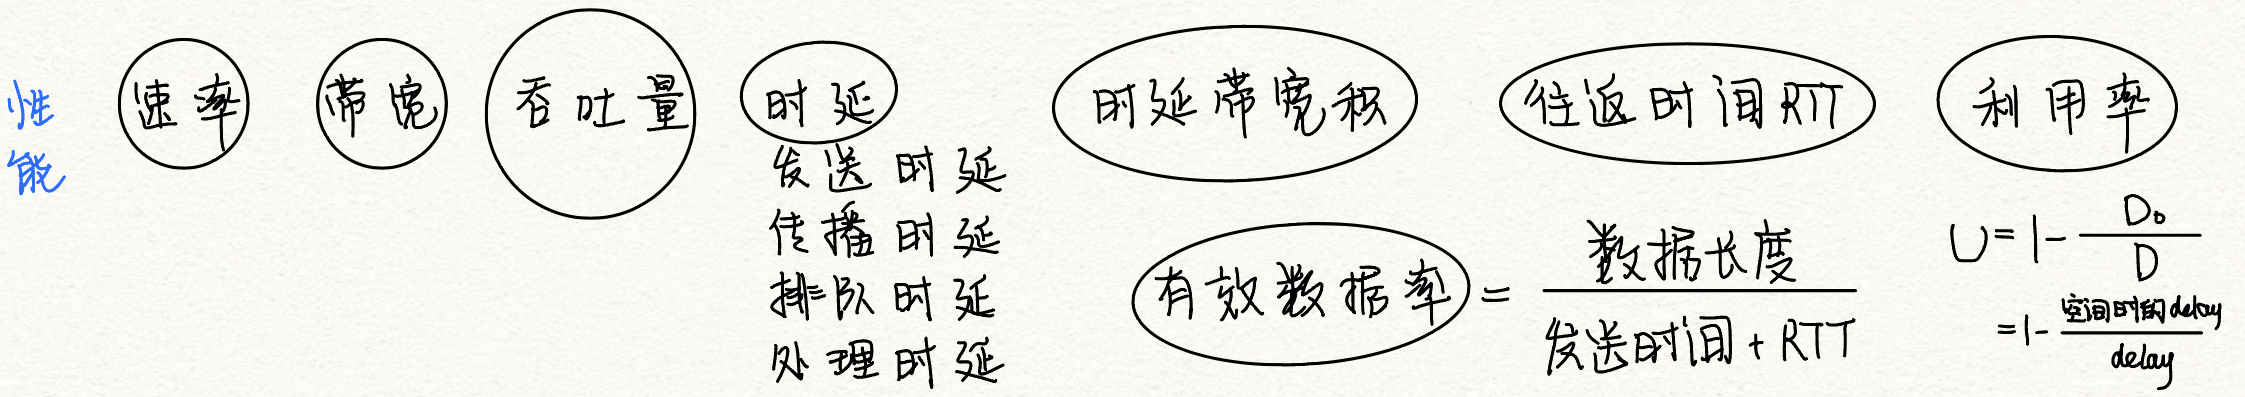 性能
速率
带宽
吞吐量
时延
发送时延
传播时延
排队时延
处理时延
时延带宽积
往返时间RTT
有效数据率 = 数据长度 / 发送时间 + RTT
利用率
U = 1 - D₀ / D
= 1 - 空闲时的delay / delay